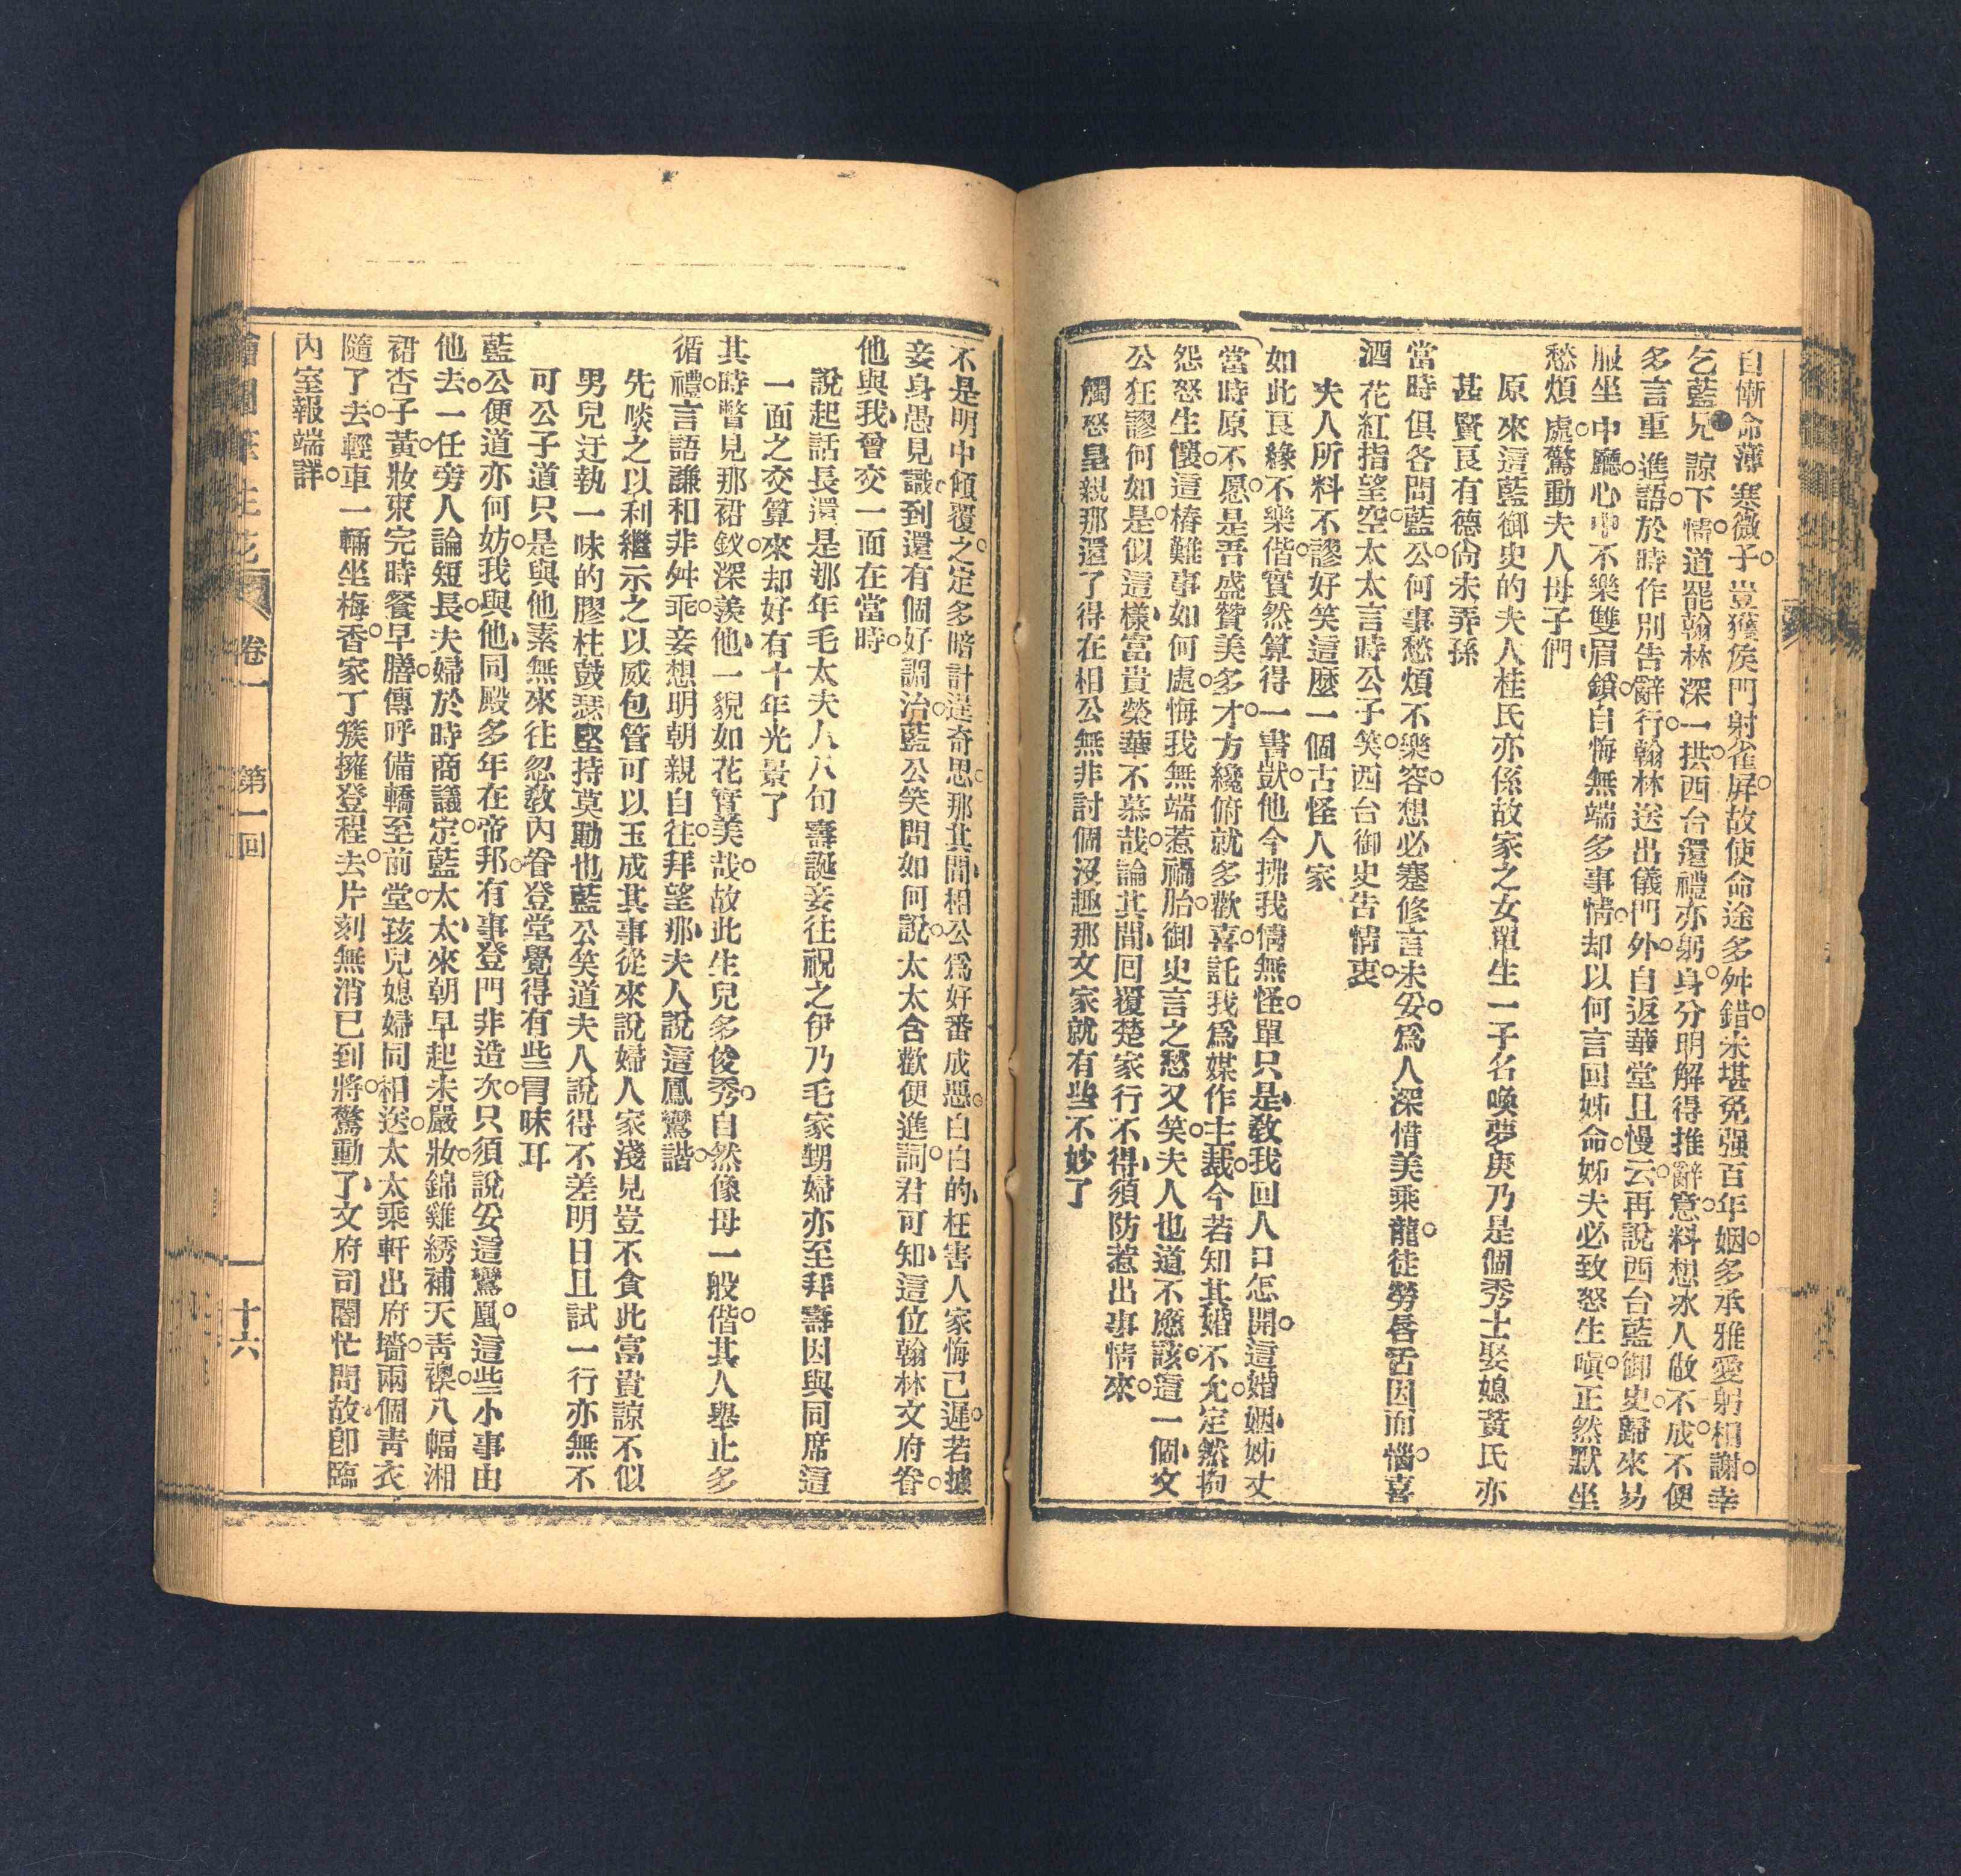 自慚命薄寒微子。豈獲侯門射雀屏。故使命途多舛錯。未堪勉强百年姻。多承雅愛躬相謝。幸
乞藍兄諒下情。道罷翰林深一拱。西台還禮亦躬身。分明解得推辭意。料想冰人做不成。不便
多言重進語。於時作別告辭行。翰林送出儀門外。自返華堂且慢云。再說西台藍御史。歸來易
服坐中廳。心中不樂雙眉鎖。自悔無端多事情。却以何言回姊命。姊夫必致怒生嗔。正然默坐
愁煩處。驚動夫人母子們
原來這藍御史的夫人桂氏亦係故家之女單生一子名喚夢庚乃是個秀士娶媳黃氏亦
甚賢良有德尙未弄孫
當時俱各問藍公。何事愁煩不樂容。想必蹇修言未妥。爲人深惜美乘龍。徒勞唇舌因而惱。喜
酒花紅指望空。太太言時公子笑。西台御史告情衷。
夫人所料不謬好笑這麼一個古怪人家
如此良緣不樂偕。實然算得一書獃。他今拂我情無怪。單只是、敎我回人口怎開。這婚姻、姊丈
當時原不愿。是吾盛贊美多才。方纔俯就多歡喜。託我爲媒作主裁。今若知其婚不允。定然抱
怨怒生懷。這樁難事如何處。悔我無端惹禍胎。御史言之愁又笑。夫人也道不應該。這一個、文
公狂謬何如是。似這樣、富貴榮華不慕哉。論其間、回覆楚家行不得、須防惹出事情來。
觸怒皇親那還了得在相公無非討個沒趣那文家就有些不妙了
不是明中傾覆之。定多暗計逞奇思。那其間、相公爲好番成惡。白白的、枉害人家悔已遲。若據
妾身愚見識、到還有個好調治。藍公笑問如何說。太太含歡便進詞。君可知、這位翰林文府眷。
他與我、曾交一面在當時。
說起話長還是那年毛太夫人八旬壽誕妾往祝之伊乃毛家甥婦亦至拜壽因與同席這
一面之交算來却好有十年光景了
其時瞥見那裙釵。深羡他、一貌如花實美哉。故此生兒多俊秀。自然像母一般偕。其人舉止多
循禮。言語謙和非舛乖。妾想明朝親自往。拜望那、夫人說這鳳鸞諧。
先啖之以利繼示之以威包管可以玉成其事從來說婦人家淺見豈不貪此富貴諒不似
男兒迂執一味的膠柱鼓瑟堅持莫動也藍公笑道夫人說得不差明日且試一行亦無不
可公子道只是與他素無來往忽敎內眷登堂覺得有些冒昧耳
藍公便道亦何妨。我與他、同殿多年在帝邦。有事登門非造次。只須說妥這鸞凰。這些小事由
他去。一任旁人論短長。夫婦於時商議定。藍太太、來朝早起未嚴妝。錦雞綉補天靑襖。八幅湘
裙杏子黃。妝束完時餐早膳。傳呼備轎至前堂。孩兒媳婦同相送。太太乘軒出府墻。兩個靑衣
隨了去。輕車一輛坐梅香。家丁簇擁登程去。片刻無消已到將。驚動了、文府司閽忙問故。卽臨
內室報端詳。
卷一
第一回
十六